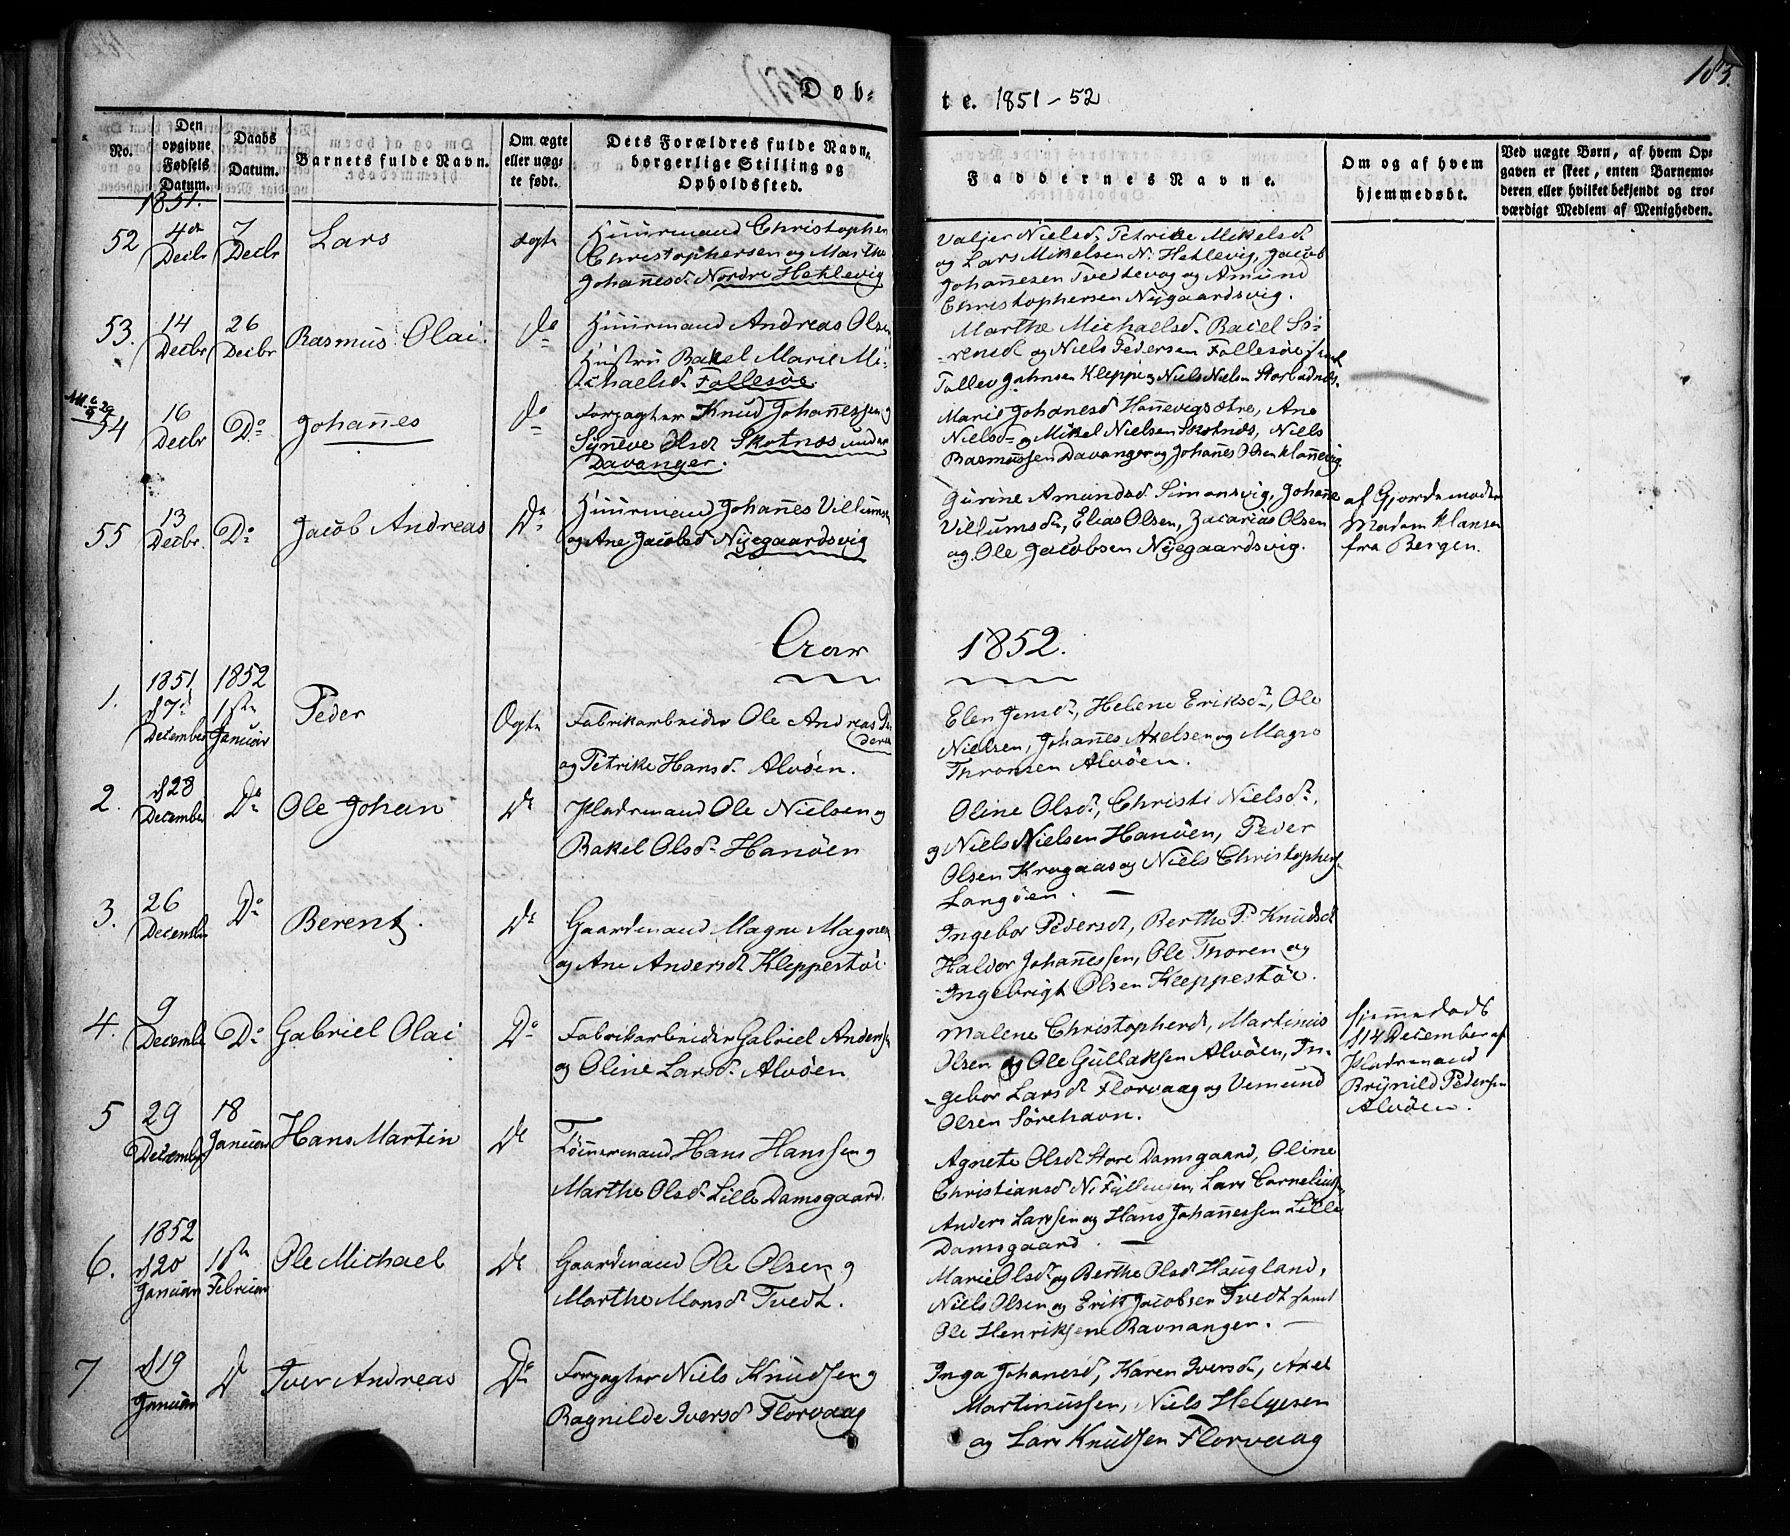 183.
Døb-
te. 1851-52
No.
Den opgivne Fødsels Datum.
Daabs Datum.
Barnets fulde Navn.
Om ægte eller uægte født.
Dets Forældres fulde Navn, borgerlige Stilling og Opholdssted.
Faddernes Navne.
Om og af hvem hjemmedøbt.
Ved uægte Børn, af hvem Opgaven er skeet, enten Barnemoderen eller hvilket bekjendt og troværdigt Medlem af Menigheden.
1851.
52
4de Decbr
7 Decbr
Lars
ægte
Huurmand Christopher
Christophersen og Marthe
Johañesd. Nordre Hetlevig
Valjer Nielsd, Petrike Mikelsd
og Lars Mikelsen N. Hetlevig, Jacob
Johañesen Tvedtevog og Amund
Christophersen Nygaardsvig.
53.
14 Decbr
26 Decbr
Rasmus Olai.
do
Huurmand Andreas Olsen
Hustru Rakel Marie Mi-
chaelsd. Follesøe
Marthe Michaelsd. Rakel Sø-
rensd og Niels Pedersen Follesøe samt
Tollev Johnsen Kleppe og Niels Nielsen Storbadnes.
54
16 Decbr
Do
Johañes
do
Forpagter Knud Johañessen og
Syneve Olsd Skotnæs under
Davanger.
Marie Johanesd Hanevigsætre, Ane
Nielsd og Mikel Nielsen Skotnæs, Niels
Rasmussen Davanger og Johañes Olsen Hañevig.
55
13 Decbr.
Do
Jacob Andreas
Do
Huurmand Johañes Villumsen
og Ane Jacobsd Nyegaardsvig
Gurine Amundsd. Simonsvig, Johane
Villumsd, Elias Olsen, Zacarias Olsen
og Ole Jacobsen Nyegaardsvig.
af Gjordemoder
Madam Hansen
fra Bergen.
Aar 1852.
1.
1851 d 7de December
1852 1ste Januar
Peder
Ægte
Fabrikarbeider Ole Andreas Pe-
dersen
og Petrike Hansd. Alvøen.
Elen Jensd, Helene Eriksd, Ole
Nielsen, Johañes Axelsen og Magne
Thronsen Alvøen.
2.
d 28 December
Do
Ole Johan
Do
Pladsmand Ole Nielsen og
Rakel Olsd. Hanøen
Oline Olsd, Christi Nielsd,
og Niels Nielsen Hanøen, Peder
Olsen Krogaas og Niels Christophers.
Langøen.
3.
26 December
Do
Berent.
Do
Gaardmand Magne Magnes.
og Ane Andersd Kleppestøe
Ingebor Pedersd, Berthe P. Knudsd
Haldor Johañessen, Ole Thoren og
Ingebrigt Olsen Kleppestøe.
4.
9 December
Do
Gabriel Olai
Do
Fabrikarbeider Gabriel Anders.
og Oline Larsd. Alvøen
Malene Christophersd, Martinus
Olsen og Ole Gullaksen Alvøen, In-
gebor Larsd Florvaag og Vemund
Olsen Sørehavn.
hjemmedøbt
d 14 December af
Pladsmand
Brynild Pedersen
Alvøen.
5
29 December
18 Januar
Hans Martin
Do
Tømmermand Hans Hanssen og
Marthe Olsd. Lille Damsgaard.
Agnete Olsd. Store Damsgaard, Oline
Christiansd N. Lars Corneliuss.
Anders Larssen og Hans Johañessen Lille
Damsgaard.
6.
1852 d 20 Januar
1ste Februar
Ole Michael
Do
Gaardmand Ole Olsen og
Marthe Monsd Tvedt.
Marie Olsd og Berthe Olsd Haugland,
Niels Olsen og Erik Jacobsen Tvedt samt
Ole Henriksen Ravnanger.
7
d 19 Januar
Do
Iver Andreas
Do
Forpagter Niels Knudsen og
Ragnilde Iversd Florvaag
Inga Johanesd, Karen Iversd, Axel
Martinussen, Niels Helgesen
og Lars Knudsen Florvaag